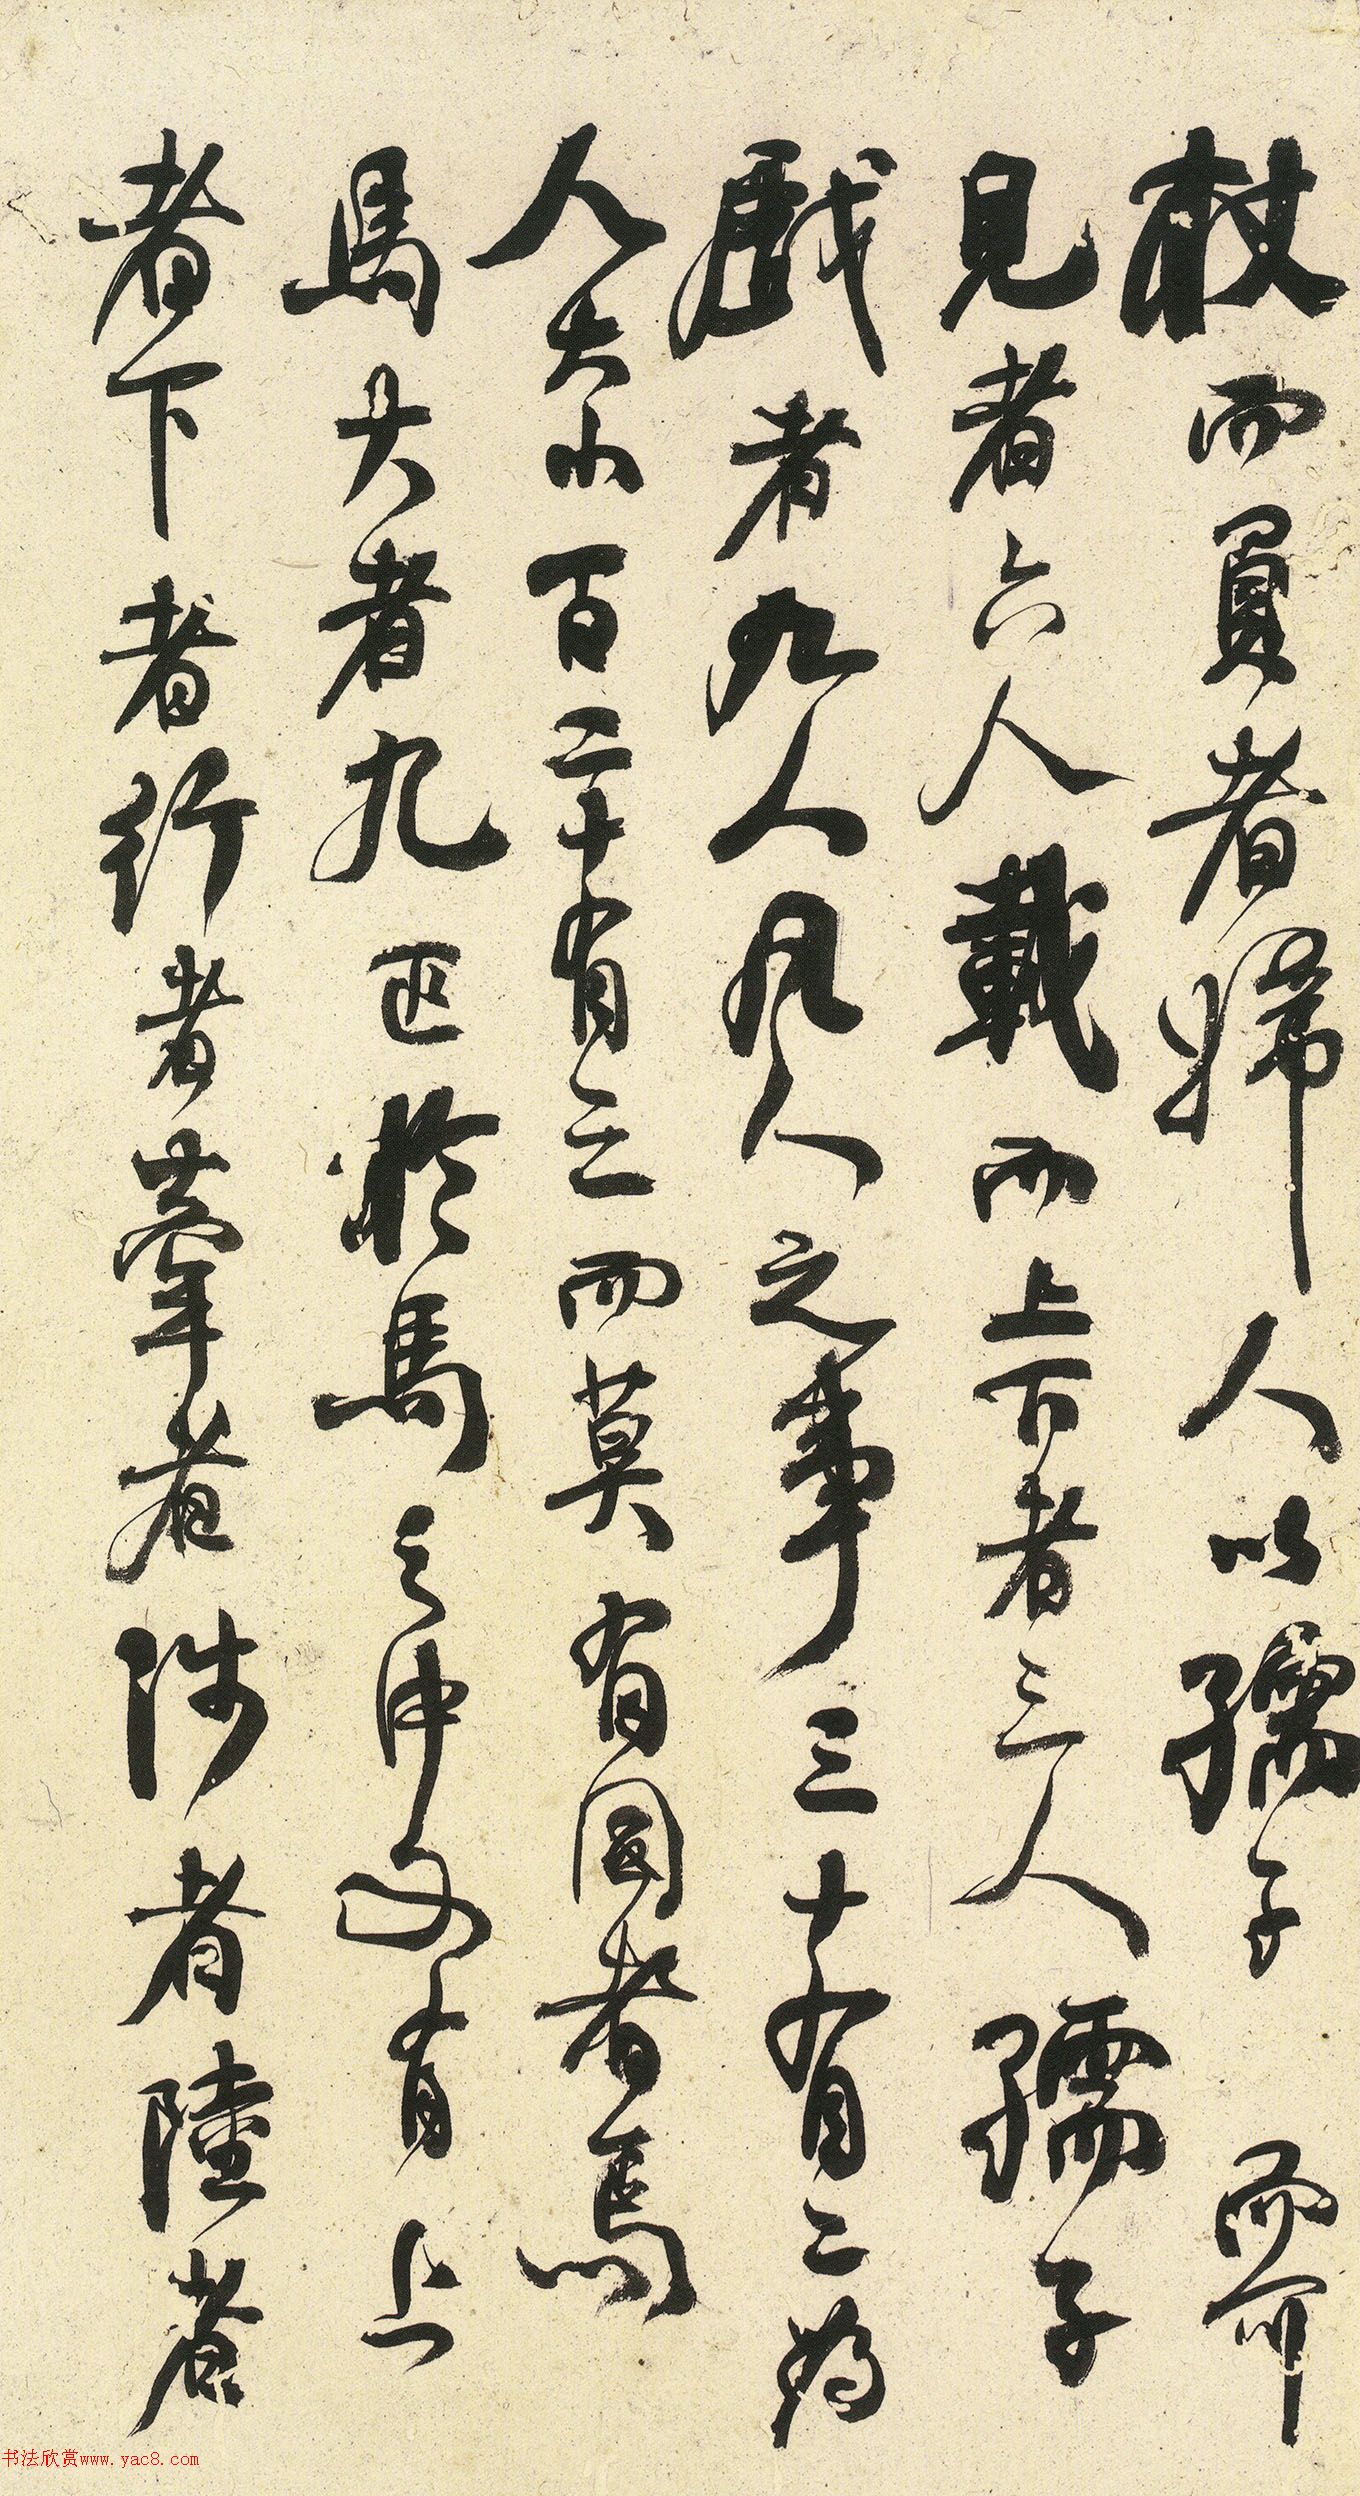 杖而負者婦人以孺子而可
見者六人載而上下者三人孺子
戲者九人凡人之事三十有二為
人大小百二十有三而莫有同者焉
馬大者九匹於馬之中又有上
者下者行者牽者涉者陸者
书法欣赏www.yac8.com